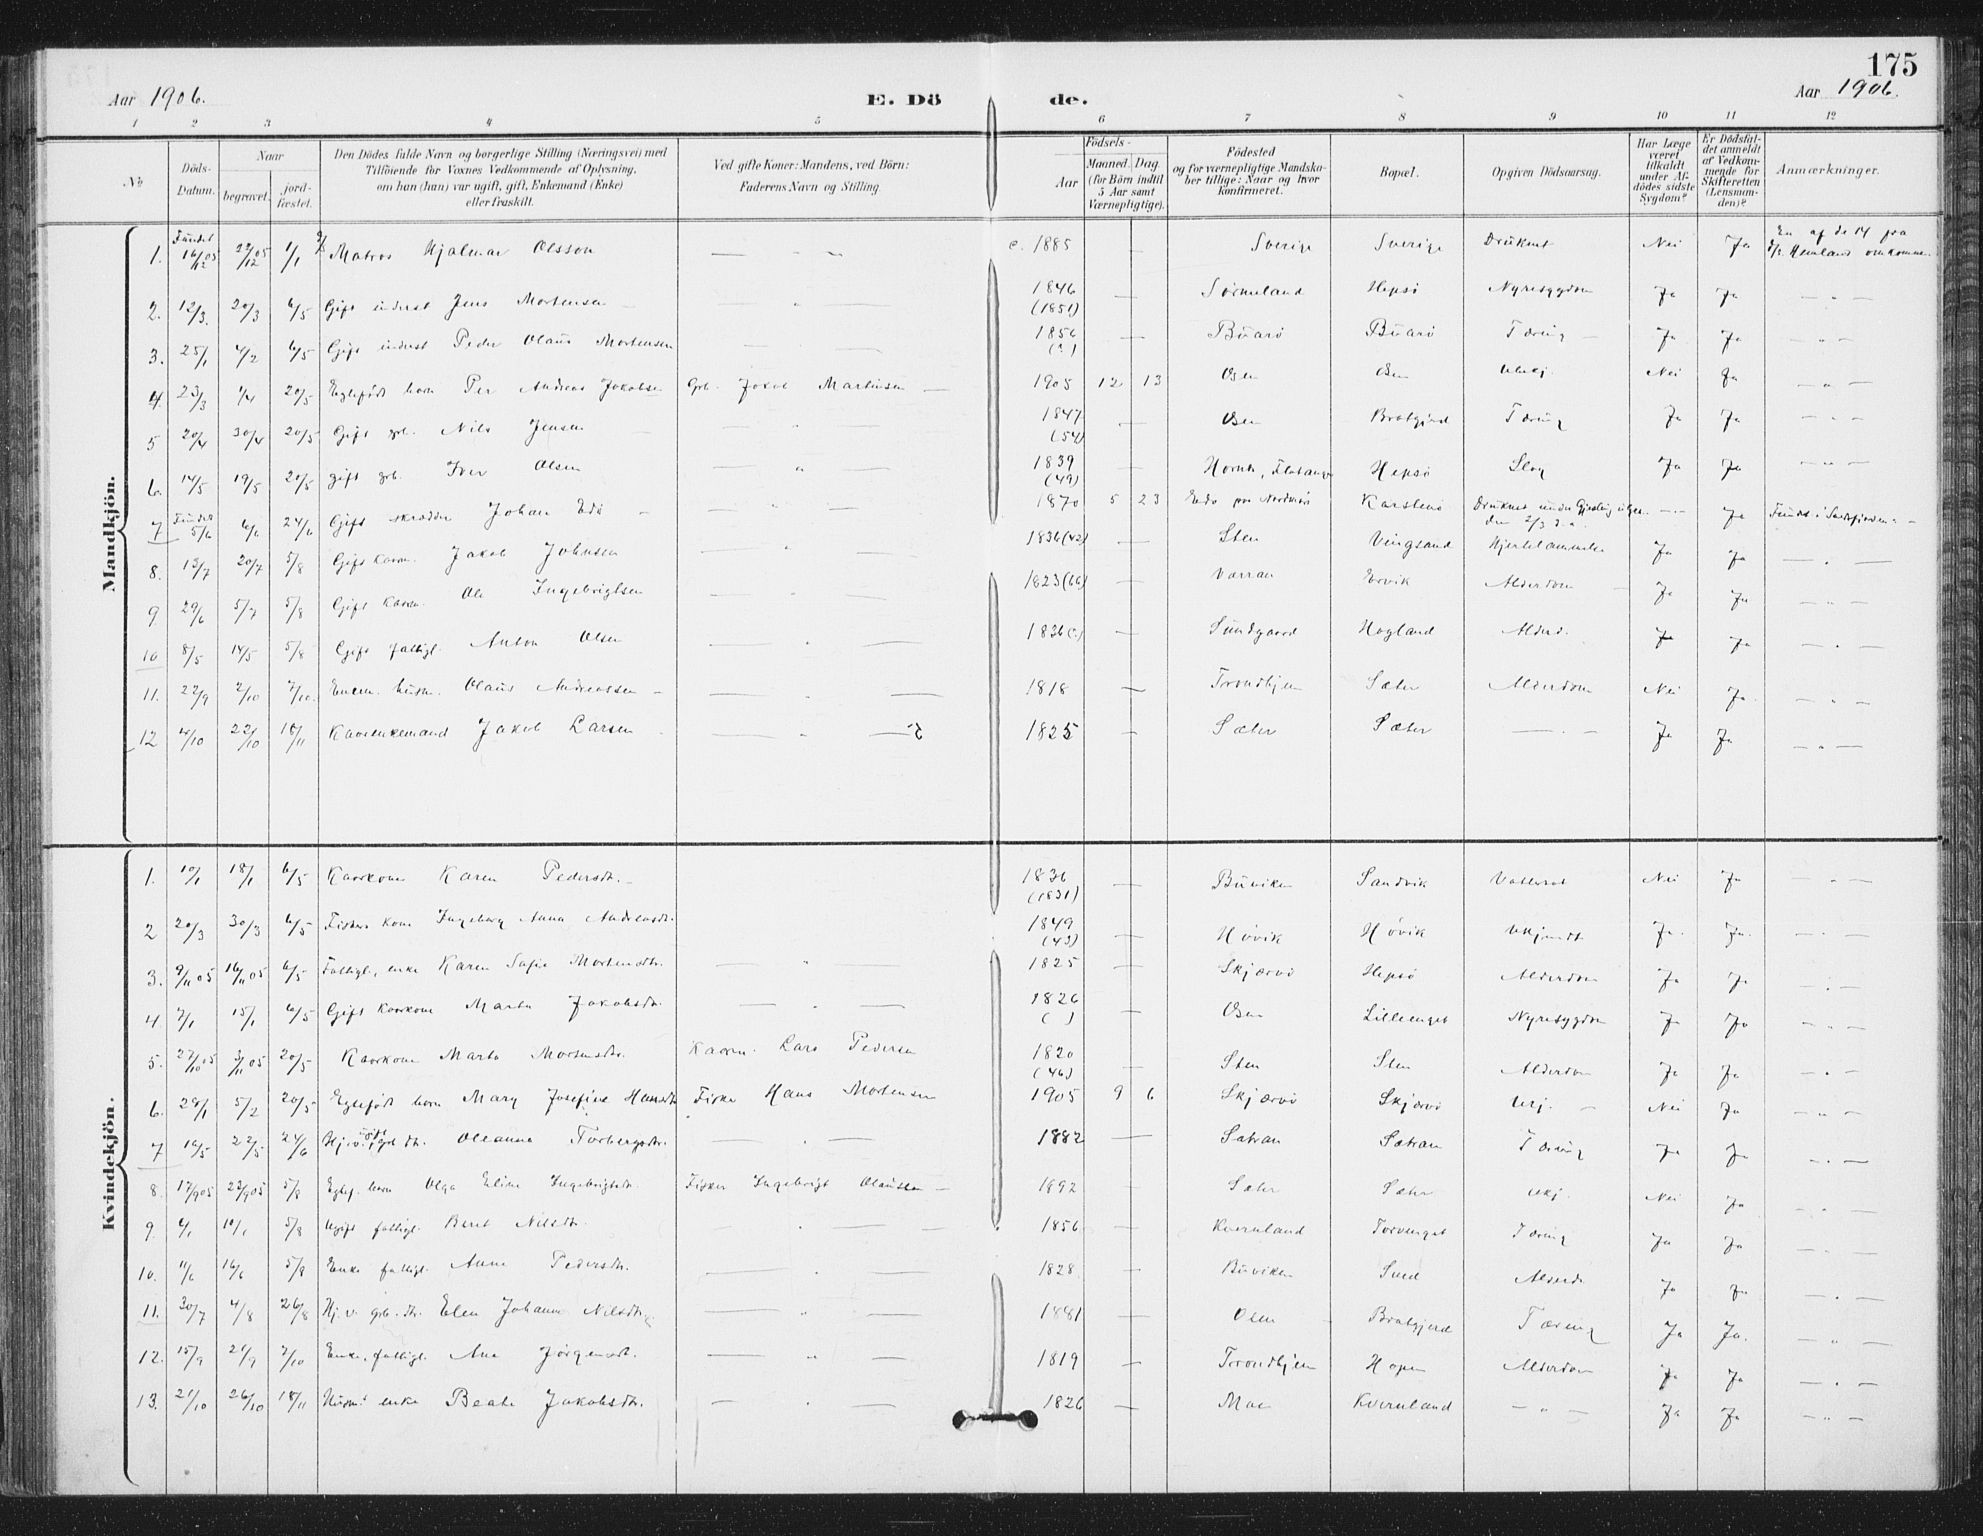 175
Aar 1906. E. Dö de. Aar 1906.
1 2 3 4 5 6 7 8 9 10 11 12
No Döds-Datum. Naar begravet. jord-fæstet. Den Dödes fulde Navn og borgerlige Stilling (Næringsvei) med Tilföiende for Voxnes Vedkommende af Oplysning, om han (hun) var ugift, gift, Enkemand (Enke) eller fraskilt. Ved gifte Koner: Mandens, ved Börn: Faderens Navn og Stilling. Födsels- Aar Maaned. Dag. (for Börn indtil 5 Aar samt Værnepligtige). Födested og for værnepligtige Mandskaber tillige: Naar og hvor konfirmeret. Bopæl. Opgiven Dödsaarsag. Har Læge været tilkaldt under Afdödes sidste Sygdom? Er Dödsfaldet anmeldt af Vedkommende for Skifteretten (Lensmanden)? Anmærkninger.
Mandkjön.
1. Fundet 16/12 05 22/12 05 1/1 Matros Hjalmar Olsson — „ — c. 1885 — Sverige Sverige Druknet Nei Ja En af de 14 fra Hemland omkomne.
2. 12/3. 20/3 6/5 Gift inderst Jens Mortensen — „ — 1846 (1851) — Sörmeland Hepsö Nyresygdom Ja Ja — „ —
3. 25/1 4/2 6/5 Gift inderst Peder Olaus Mortensen — „ — 1856 — Buarö Buarö Tæring — Ja Ja — „ —
4. 23/3 1/4 20/5 Egtefödt barn Per Andreas Jakobsen Grb. Jakob Martinsen — 1905 12 13 Osen Osen Ubekj. Nei Ja — „ —
5 20/4 30/4 20/5 Gift grb. Nils Jensen — „ — 1847 (54) — Osen Bratgjerd Tæring Ja Ja — „ —
6. 14/5 19/5 20/5 gift grb. Iver Olsen — „ — 1839 (49) — Flatanger Hepsö Slag Ja Ja — „ —
7 Fundet 5/6 6/6 24/6 Gift skrædder Johan Edö — „ — 1870 5 23 Edö paa Nordmöre Karstenö Druknet under den 2/3 d.a. — Ja Fundet i
8. 13/7 20/7 5/8 Gift Kaarm. Jakob Johnsen — „ — 1836 (42) — Sten Vingsand Hjertelammelse Ja Ja — „ —
9 29/6 5/7 5/8 Gift Kaarm. Ole Ingebrigtsen — „ — 1823 (66) — Værran Ervik Alderdom — Ja Ja — „ —
10 8/5 14/5 5/8 Gift fattigl. Anton Olsen — „ — 1836 — Sundgaard Hogland Alderd. Ja Ja — „ —
11. 22/9 2/10 7/10. Enkem. husm. Olaus Andreassen — „ — 1818 — Trondhjem Sæter Alderdom Nei Ja. — „ —
12 4/10 22/10 18/11 Kaarenkemand Jakob Larsen — „ — 1825 — Sæter Sæter — „ — Ja Ja — „ —
Kvindekjön.
1. 10/1 18/1 6/5 Kaarkone Karen Pedersdt. 1836 (1831) — Buviken Sandvik Vattersot Nei Ja — „ —
2 20/3 30/3 6/5 Fiskers kone Ingeborg Anna Andreasdt. 1849 (43) — Hövik Hövik Ukjendt Ja. Ja. — „ —
3. 9/11 05 16/11 05 6/5 Fattigl., enke Karen Sofie Mortensdtr. — „ — 1825 — Skjærvö Hepsö Alderdom Ja Ja — „ —
4. 7/1 15/1 6/5 Gift kaarkone Marta Jakobsdt. — „ — 1826 ( ) — Osen Lilleenget Nyresygdom Ja Ja — „ —
5. 27/10 05 3/11 05 20/5 Kaarkone Marta Mortensdtr. Kaarm. Lars Pedersen 1820 (46) — Sten Sten Alderdom Ja Ja — „ —
6. 28/1 5/2 20/5 Egtefödt barn Mary Josefine Hansdt. Fisker Hans Mortensen 1905 9 6 Skjærvö Skjærvö Ukj. — Nei Ja — „ —
7 16/5 22/5 24/6 grb. dt. Oleanna Torbergsdtr. — „ — 1882 — Sætran Sætran Tæring Ja Ja — „ —
8. 17/9 05 23/9 05 5/8 Egtef. barn Olga Eline Ingebrigtsdt. Fisker Ingebrigt Olaussen — 1892 — Sæter Sæter Ukj. Nei Ja — „ —
9. 4/1 10/1 5/8 Ugift fattigl. Berit Nilsdt. — „ — 1856 — Kvernland Torvenget Tæring Ja Ja — „ —
10. 11/6 16/6 5/8 Enke fattigl. Anne Pedersdtr. — „ — 1828 — Buviken Sund Alderd. Ja Ja — „ —
11. 30/7 4/8 26/8 Hj. v. grb. dtr. Elen Johanna Nilsdtr. — „ — 1881 — Osen Bratgjerd Tæring Ja Ja. — „ —
12. 15/9 21/9 7/10 Enke, fattigl. Ane Jörgensdt. — „ — 1819 — Trondhjem Hopen Alderdom Ja Ja — „ —
13. 21/10 26/10 18/11 Husm. enke Beate Jakobsdtr. — „ — 1826 — Moe Kvernland — „ — Ja Ja — „ —